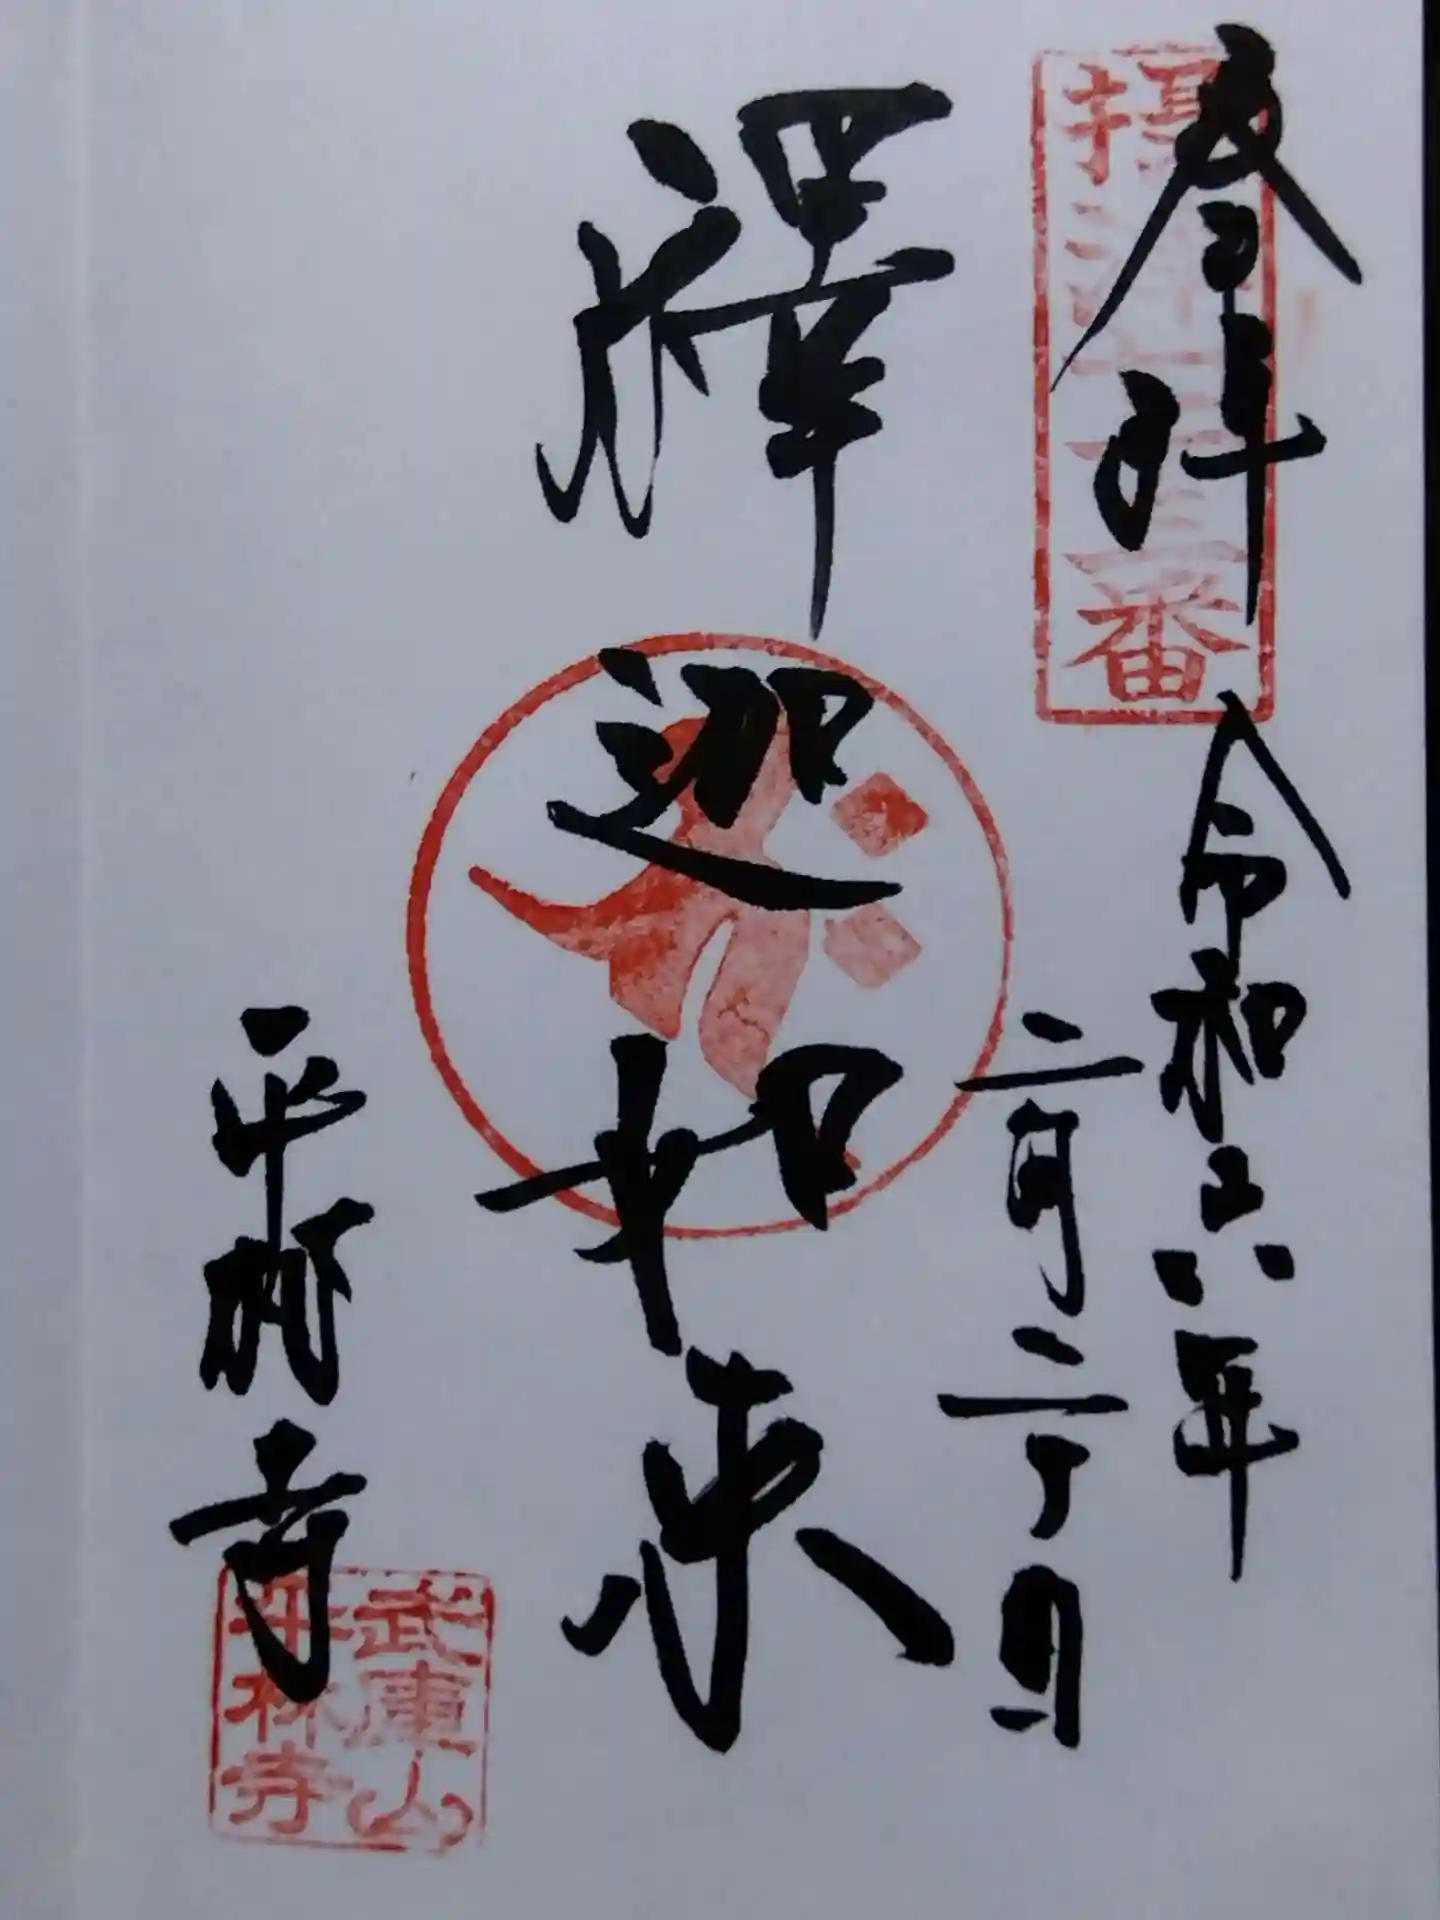 摂津七十三番
参拝
令和六年
二月二 日
釋迦如来
平林寺
武庫山
平林寺